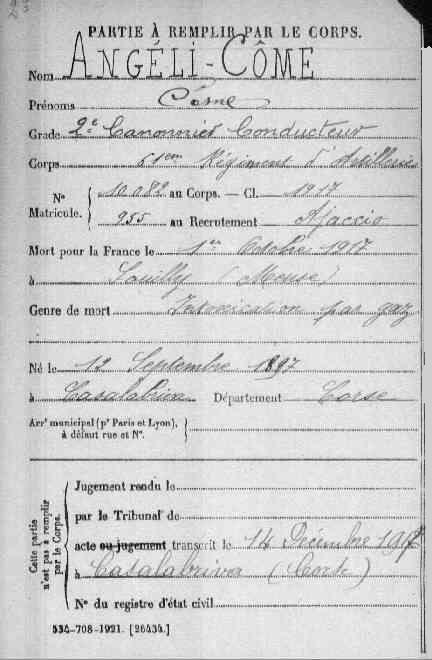 PARTIE À REMPLIR PAR LE CORPS.
Nom ANGÉLI-CÔME
Prénoms Côme
Grade 2e Canonnier Conducteur
Corps 51em Régiment d'Artillerie
Nº Matricule. { 10.082 au Corps. — Cl. 1917
955 au Recrutement Ajaccio
Mort pour la France le 1er Octobre 1917
à Souilly (Meuse)
Genre de mort Intoxication par gaz
Né le 12 Septembre 1897
à Casalabriva Département Corse
Arrt municipal (pr Paris et Lyon),
à défaut rue et Nº.
Cette partie n'est pas à remplir par le Corps.
Jugement rendu le
par le Tribunal de
acte ou jugement transcrit le 14 Décembre 1917
à Casalabriva (Corse)
Nº du registre d'état civil
534-708-1921. [26434.]